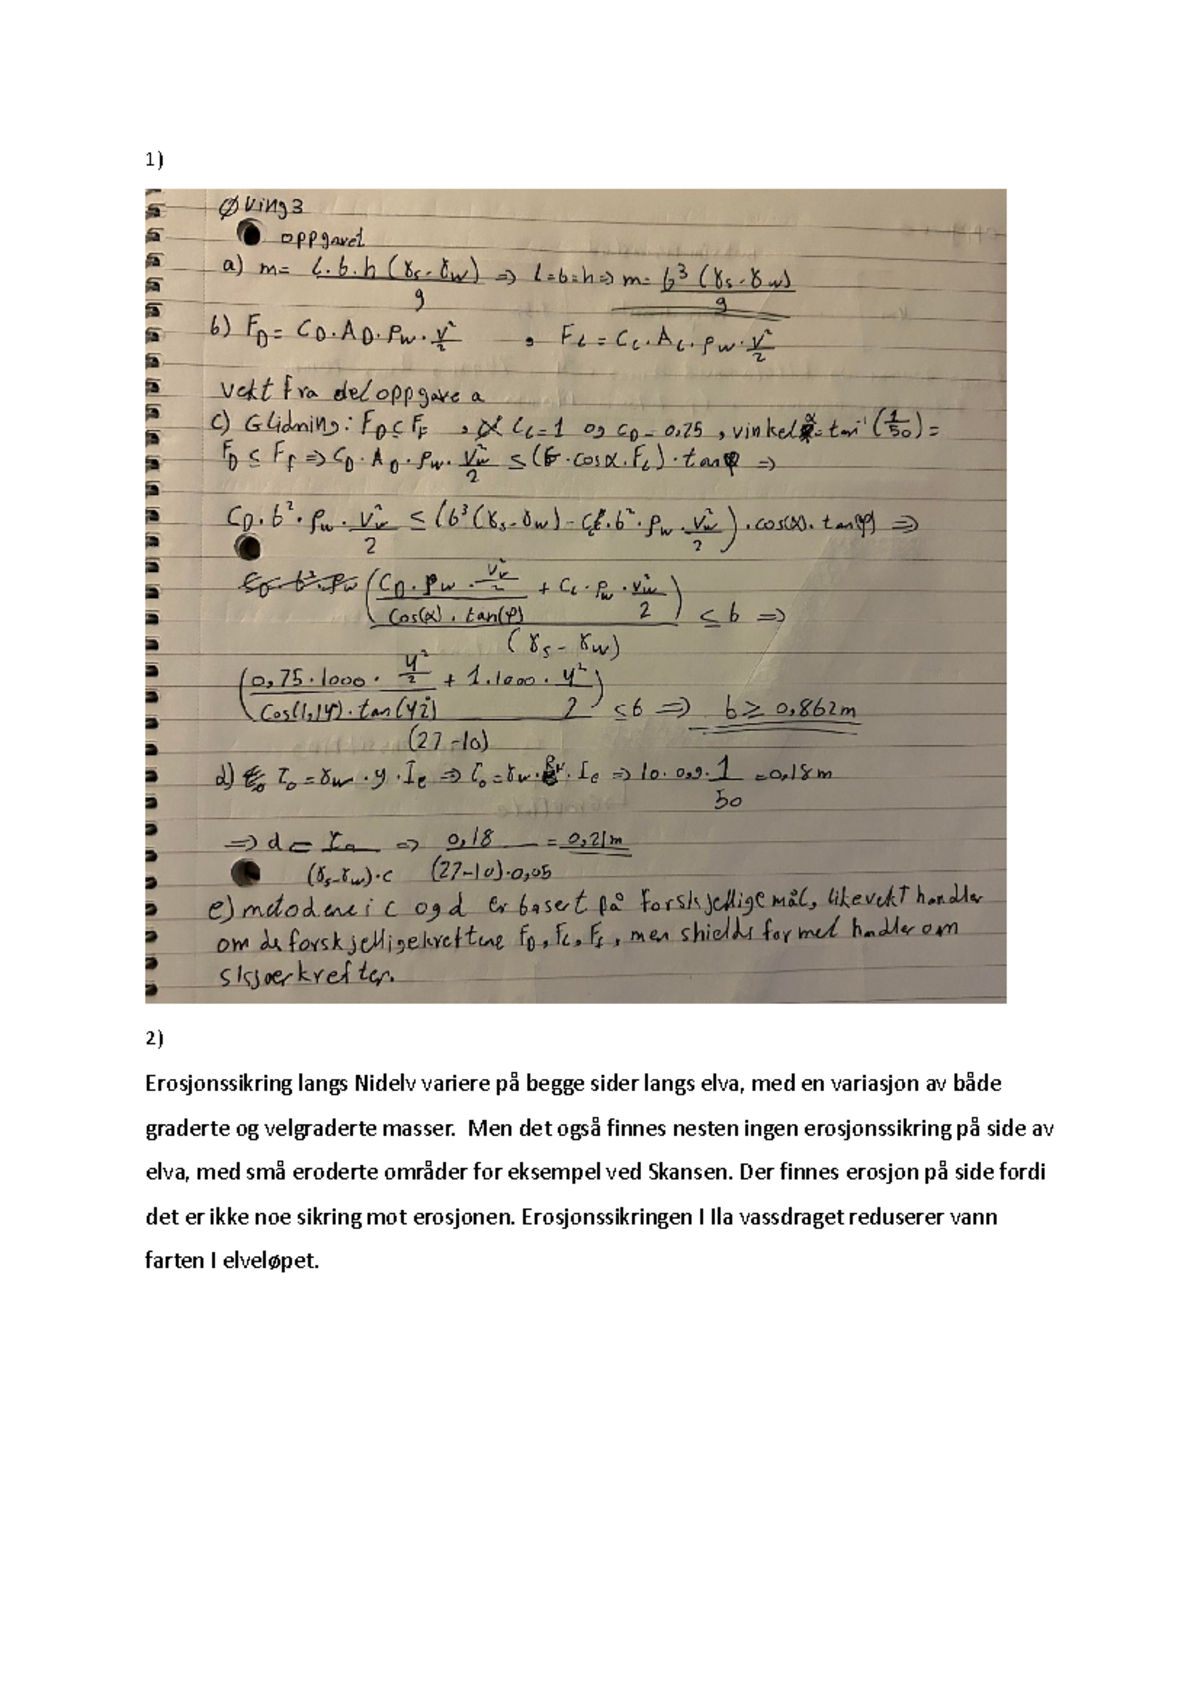 1)
Øving 3
oppgave1
a) m = L·b·h (γs-γw) / g => L=b=h => m = b³ (γs-γw) / g
b) F_D = C_D·A_D·ρw·v²/2 , F_L = C_L·A_L·ρw·v²/2
vekt fra deloppgave a
c) Glidning: F_D ≤ F_F , C_L=1 og C_D=0,25 , vinkel α=tan⁻¹(1/50)=
F_D ≤ F_f => C_D·A_D·ρw·Vw²/2 ≤ (G·cosα·F_L)·tanφ =>
C_D·b²·ρw·Vw²/2 ≤ (b³(γs-γw)-C_L·b²·ρw·Vw²/2)·cos(α)·tan(φ) =>
(C_D·ρw·Vw²/2 / cos(α)·tan(φ) + C_L·ρw·Vw²/2) / (γs-γw) ≤ b =>
(0,75·1000·4²/2 / cos(1,14)·tan(42) + 1·1000·4²/2) / (27-10) ≤ b => b ≥ 0,862m
d) τ₀=γw·y·Ie => τ₀=γw··Ie => 10·0,9·1/50 =0,18m
=> d = τ₀ / (γs-γw)·c => 0,18 / (27-10)·0,05 = 0,21m
e) metodene i c og d er basert på forskjellige mål, likevekt handler
om de forskjelligekreftene F_D, F_L, F_f, men shields formel handler om
skjærkrefter.
2)
Erosjonssikring langs Nidelv variere på begge sider langs elva, med en variasjon av både
graderte og velgraderte masser.  Men det også finnes nesten ingen erosjonssikring på side av
elva, med små eroderte områder for eksempel ved Skansen. Der finnes erosjon på side fordi
det er ikke noe sikring mot erosjonen. Erosjonssikringen I Ila vassdraget reduserer vann
farten I elveløpet.